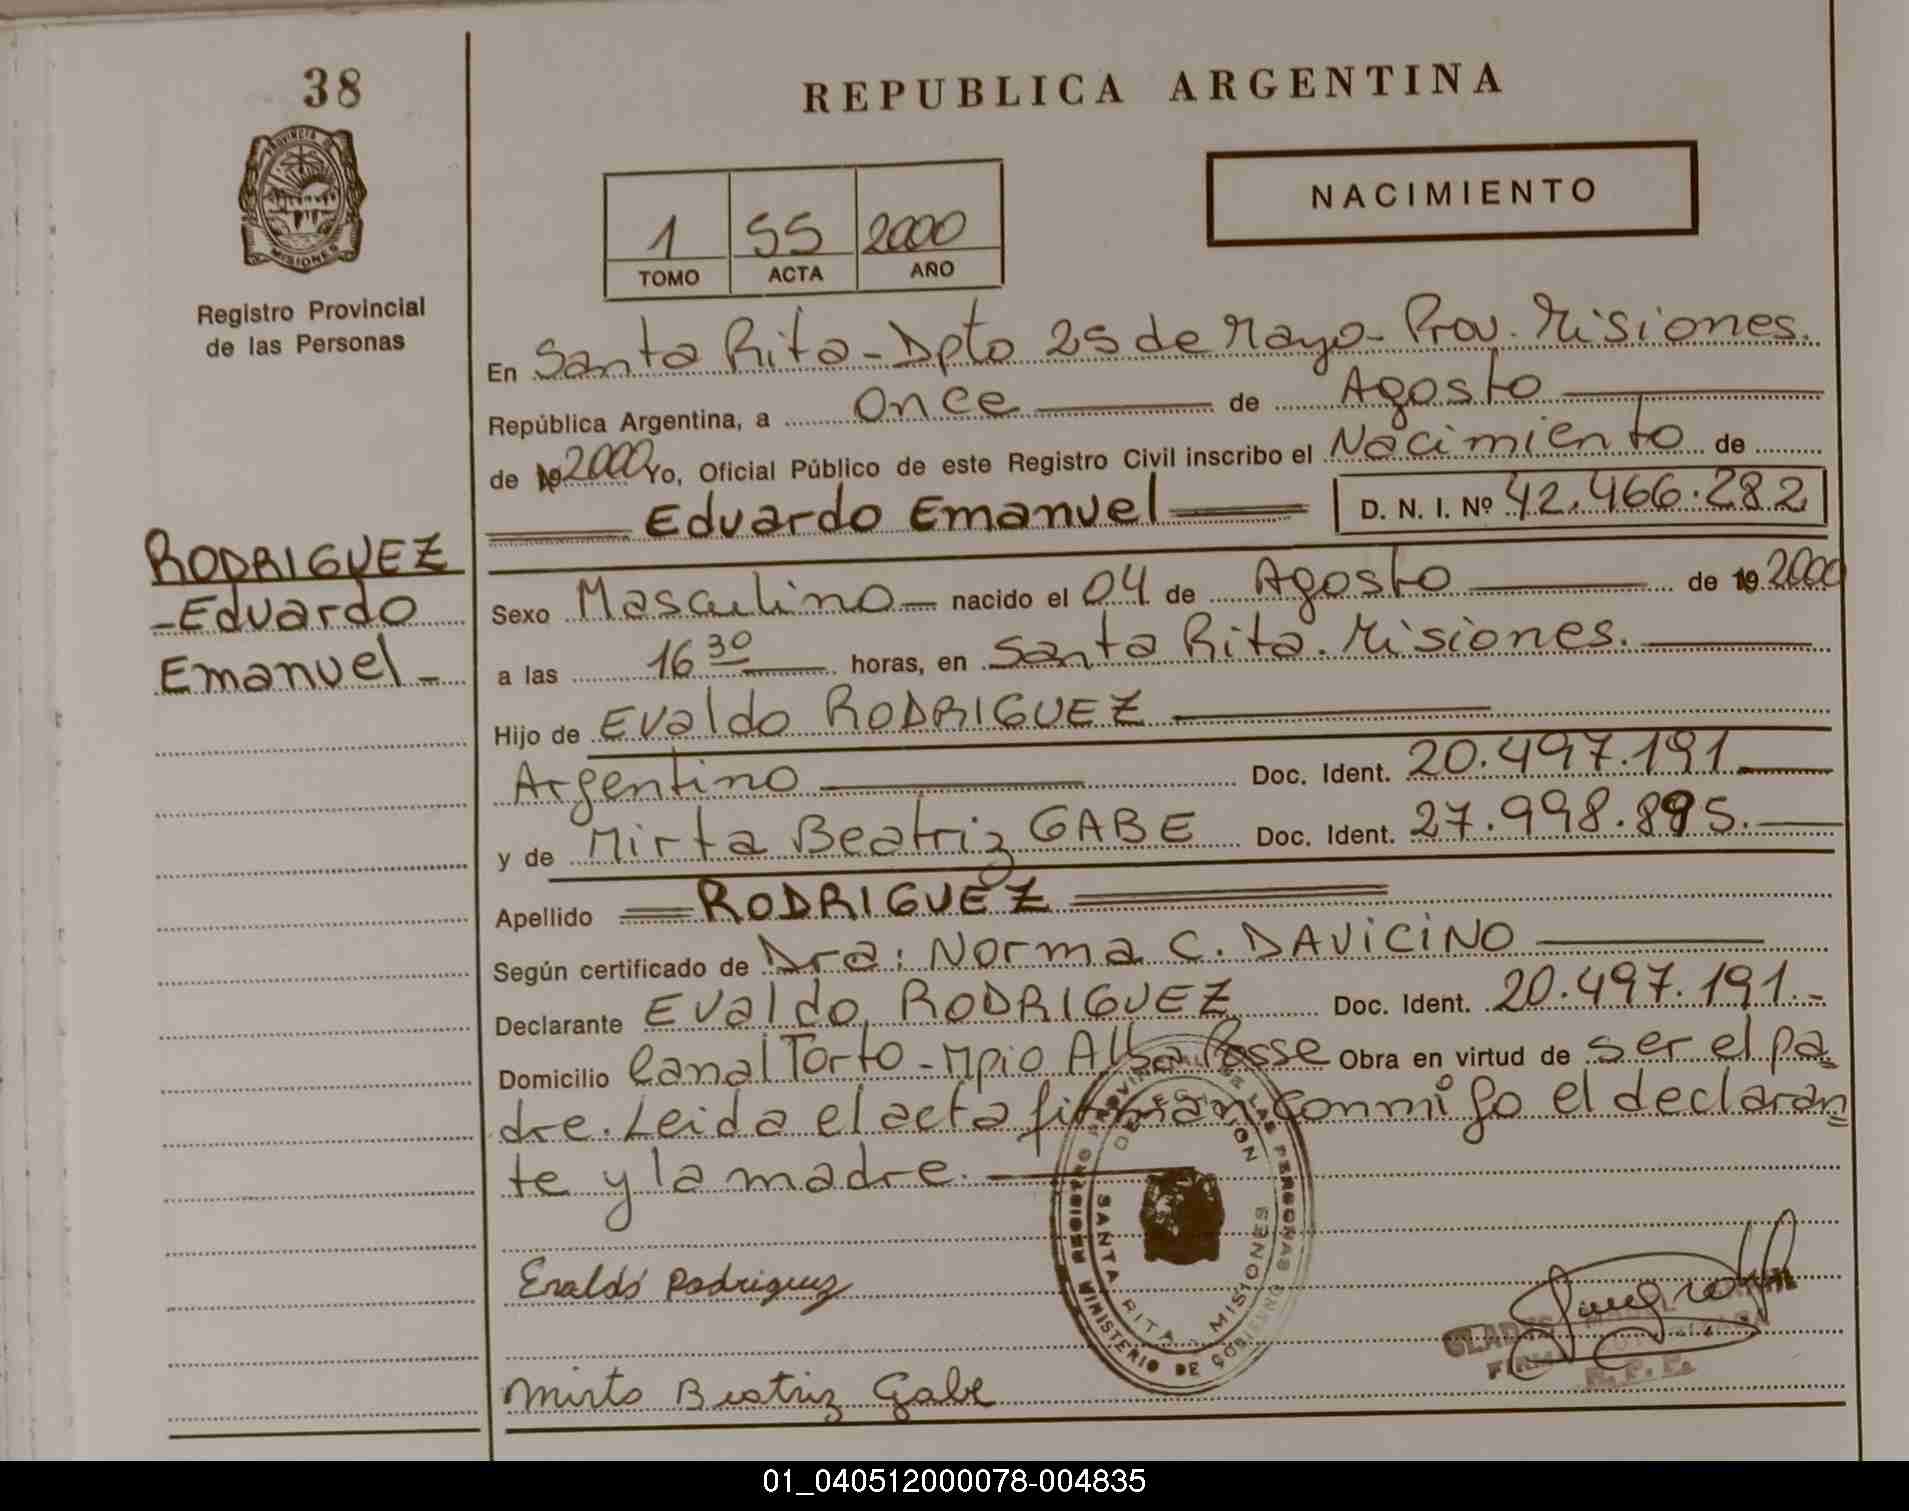 38
PROVINCIA
MISIONES
Registro Provincial
de las Personas
RODRIGUEZ
-Eduardo
Emanuel-
REPUBLICA ARGENTINA
NACIMIENTO
1 55 2000
TOMO ACTA AÑO
En Santa Rita-Dpto 25 de Mayo-Prov. Misiones.
República Argentina, a Once de Agosto
de 19 2000 Yo, Oficial Público de este Registro Civil inscribo el Nacimiento de
Eduardo Emanuel D. N. I. Nº 42.466.282
Sexo Masculino nacido el 04 de Agosto de 19 2000
a las 16 30 horas, en Santa Rita. Misiones.
Hijo de Evaldo RODRIGUEZ
Argentino Doc. Ident. 20.497.191
y de Mirta Beatriz GABE Doc. Ident. 27.998.895.
Apellido RODRIGUEZ
Según certificado de Dra: Norma C. DAVICINO
Declarante Evaldo RODRIGUEZ Doc. Ident. 20.497.191.-
Domicilio Canal Torto-Mpio Alba Posse Obra en virtud de ser el pa-
dre. Leida el acta firman conmigo el declaran=
te y la madre.
REGISTRO PROVINCIAL DE LAS PERSONAS
MINISTERIO DE GOBIERNO
DELEGACION
SANTA RITA - MISIONES
Evaldo Rodriguez
Mirta Beatriz Gabe
GLADYS
01_040512000078-004835